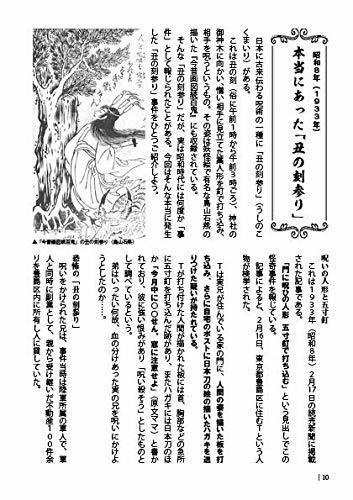 昭和8年（1933年）
本当にあった「丑の刻参り」
日本に古来伝わる呪術の一種に「丑の刻参り（うしのこ
くまいり）がある。
これは丑の刻（俗に午前1時から午前3時ごろ、神社の
御神木に向かい、憎い相手に見立てた藁人形を打ち込み、
相手を呪うというもの。その姿は妖怪絵で有名な鳥山石燕の
描いた『今昔画図続百鬼』にも収録されている。
そんな「丑の刻参り」だが、実は昭和時代には何度か「事
件」として報じられたことがある。今回はそんな本当に発生し
た「丑の刻参り」事件をひとつご紹介しよう。
▲『今昔画図続百鬼』の丑の刻参り（鳥山石燕）
呪いの人形と五寸釘
これは1933年（昭和8年）2月17日の読売新聞に掲載
された記事である。
「門に呪ひの人形 五寸釘で打ち込む」という見出しでこの
怪奇事件を報じている。
記事によると、2月16日、東京都豊島区に住むTという人
物が検挙された。
Tは実兄が住んでいる家の門に、人間の姿を描いた板を打
ち込み、さらに自宅のポストに日本刀の絵の描いたハガキを送
りつけた疑いが持たれている。
Tが打ち付けた人間が描かれた板には首、胸部などの急所
に五寸釘を打ち込んだ跡があり、またハガキには日本刀のほ
か「今月中にころす、窓に注意せよ」（原文ママ）と書か
れており、彼に強い恨みがあり「呪い殺そう」としたものと
して調べているという。
弟はいったい何故、血の分けあった実の兄を呪いにかけよ
うとしたのか……。
恐怖の「丑の刻参り」
呪いをかけられた兄は、事件当時は陸軍所属の軍人で、軍
人と同時に副業として、親から受け継いだ不動産100件余
りを豊島区内に所有し人に貸していた。
| 10